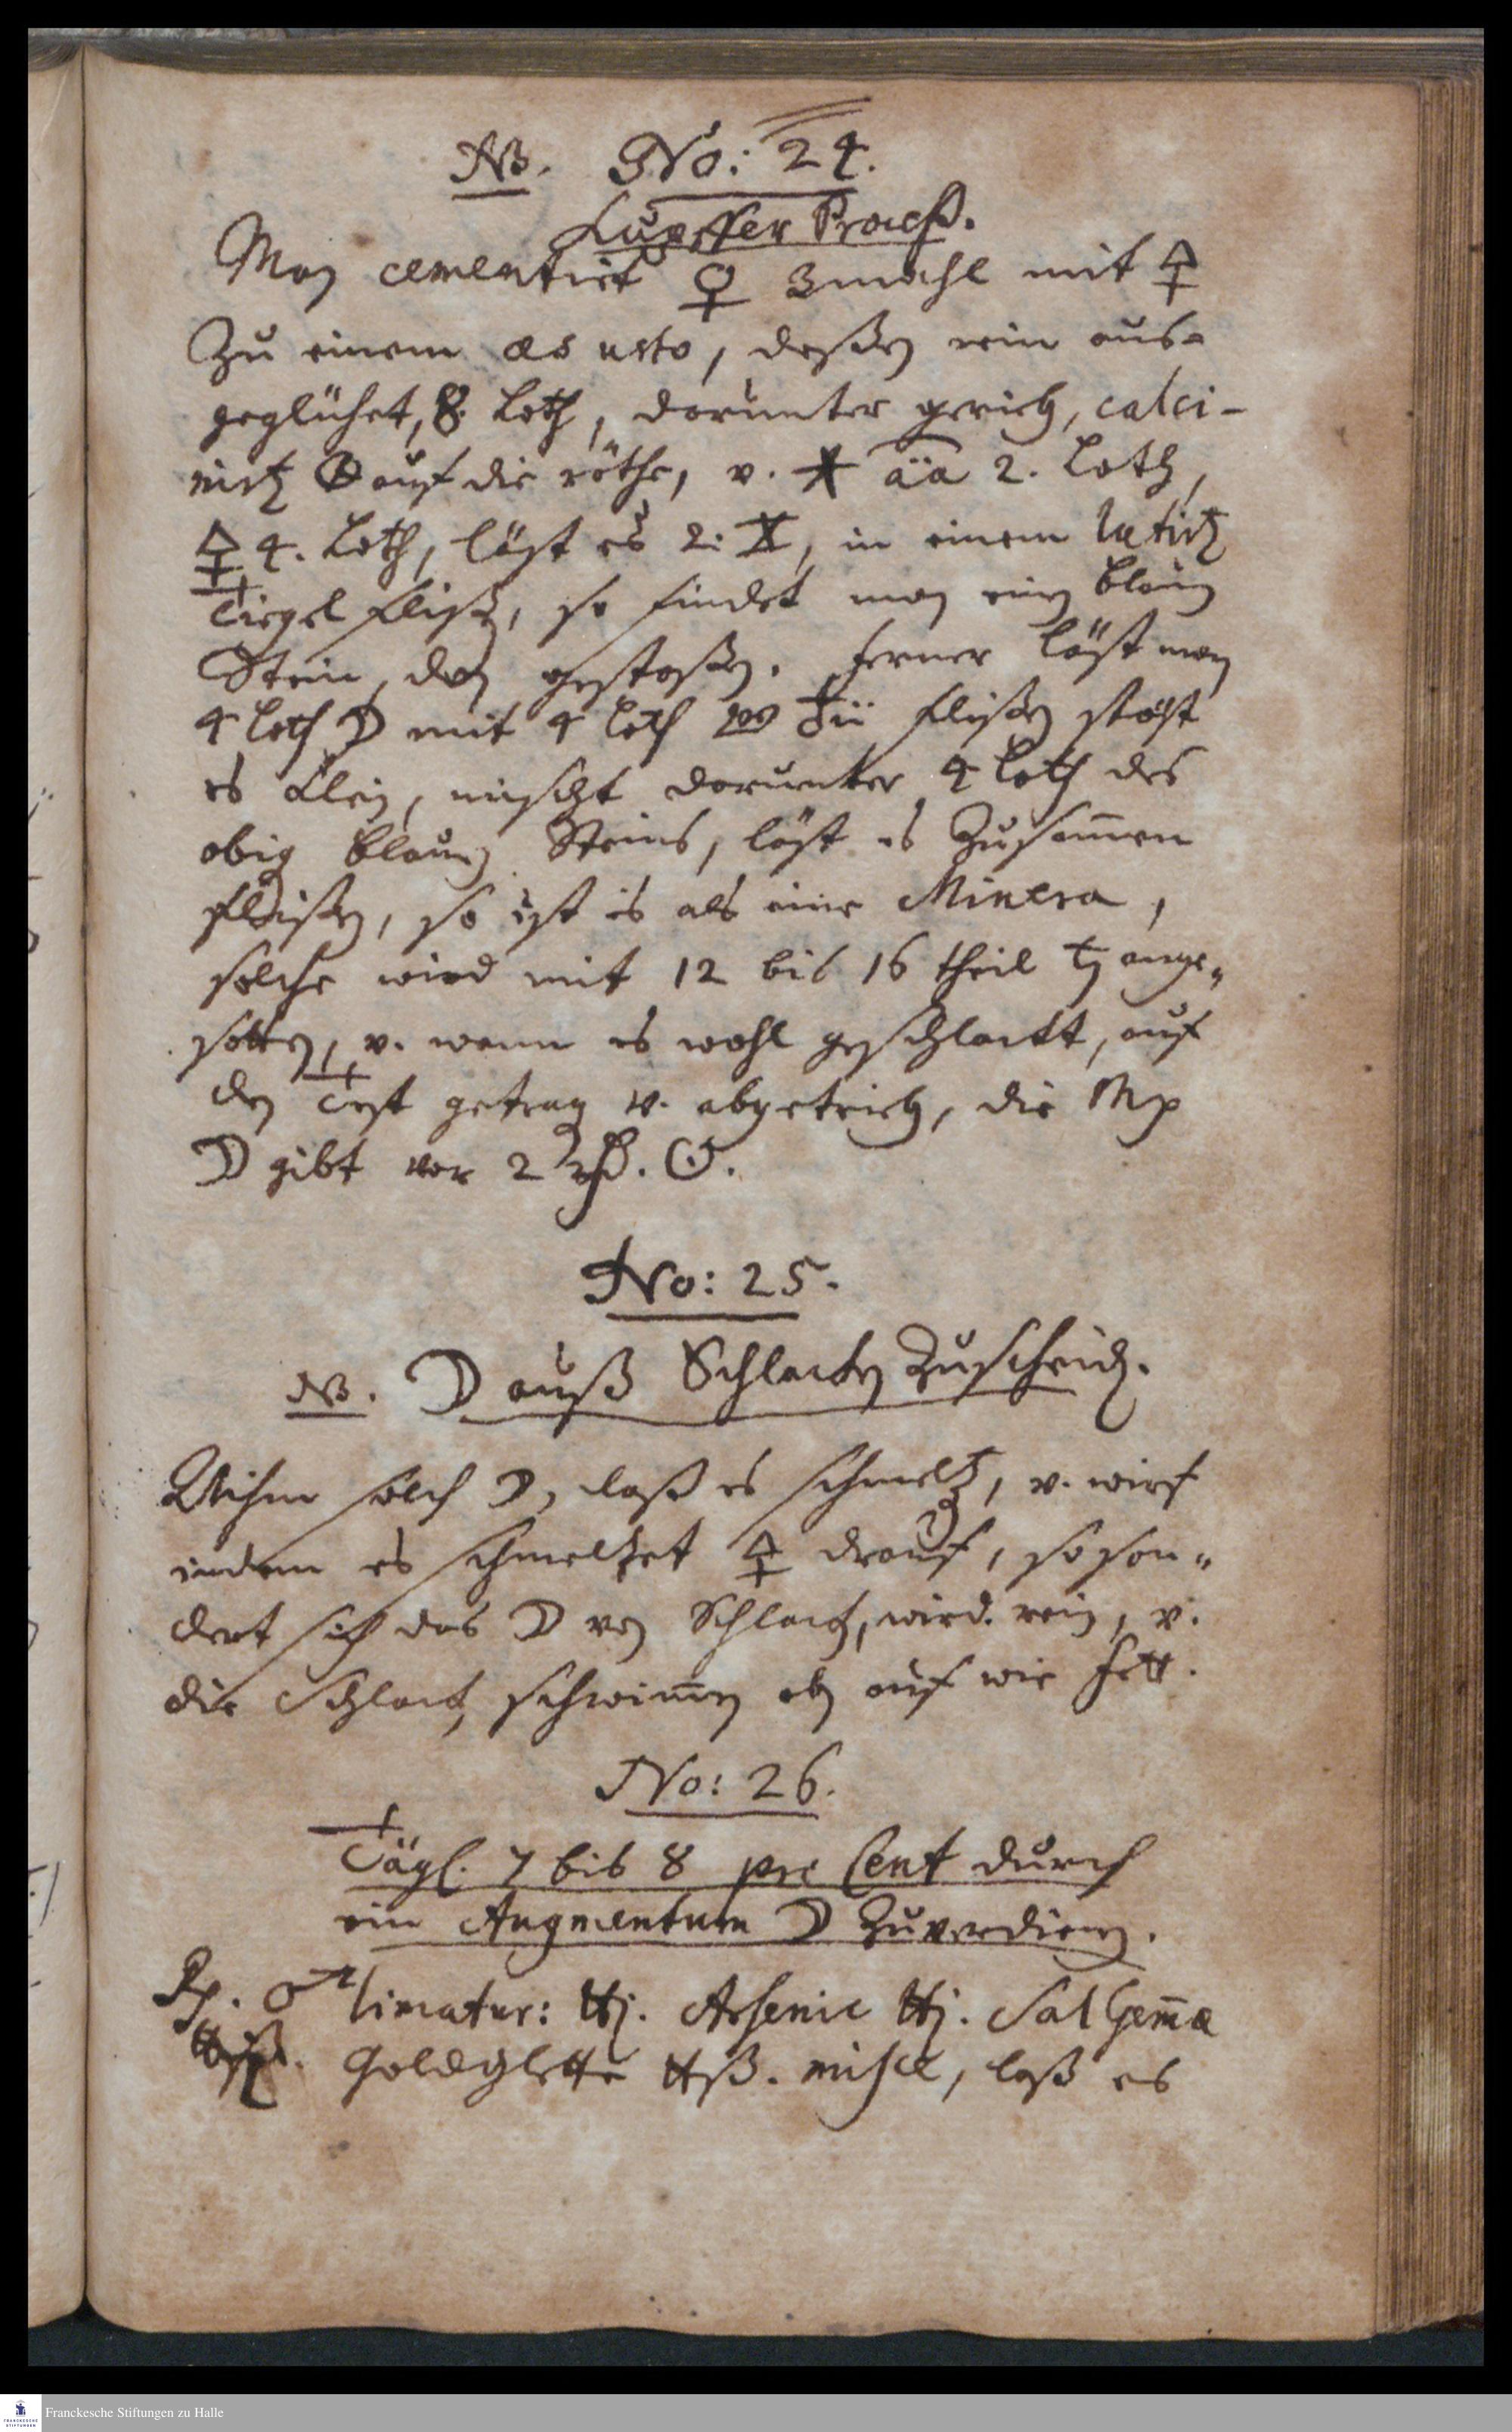 NB. No: 24.
Kupffer Process.
Man cementirt ♀ 3mahl mit 🜍
Zu einem æs usto, deßen rein aus-
geglühet, 8. Loth, darunter gerieb, calci-
nirt auf die röthe, v. āā 2. Loth,
🜍 4. Loth, läst es 2. in einem lutirt
Tiegel fließen, so findet man ein blauen
Stein, den gestoßen. ferner läst man
4 loth ☽ mit 4 loth fließen stöst
es klein, mischt darunter 4 loth des
obig blauen Steins, läst es Zusam̄en
fließen, so ist es als eine Minera,
solche wird mit 12 bis 16 theil ♄ ange-
sotten, v. wann es wohl geschlackt, auf
den Test getrag v. abgetrieb, die Mß
☽ gibt vor 2 ☉.
No: 25.
NB. ☽ auß Schlacken Zuscheid.
Nihm solch ☽, laß es schmeltz, v. wirf
indem es schmeltzet 🜍 drauf, so son-
dert sich das ☽ von Schlack, wird rein, v.
die Schlack schwim̄en oben auf wie Fett.
No: 26.
Tägl. 7 bis 8 pro Cent durch
ein Augmentum ☽ Zuverdienen.
Rp. ♂ limatur: ℔j. Arsenic ℔j. Sal Gem̄æ
Goldglette ℔ß. misce, laß es
Franckesche Stiftungen zu Halle